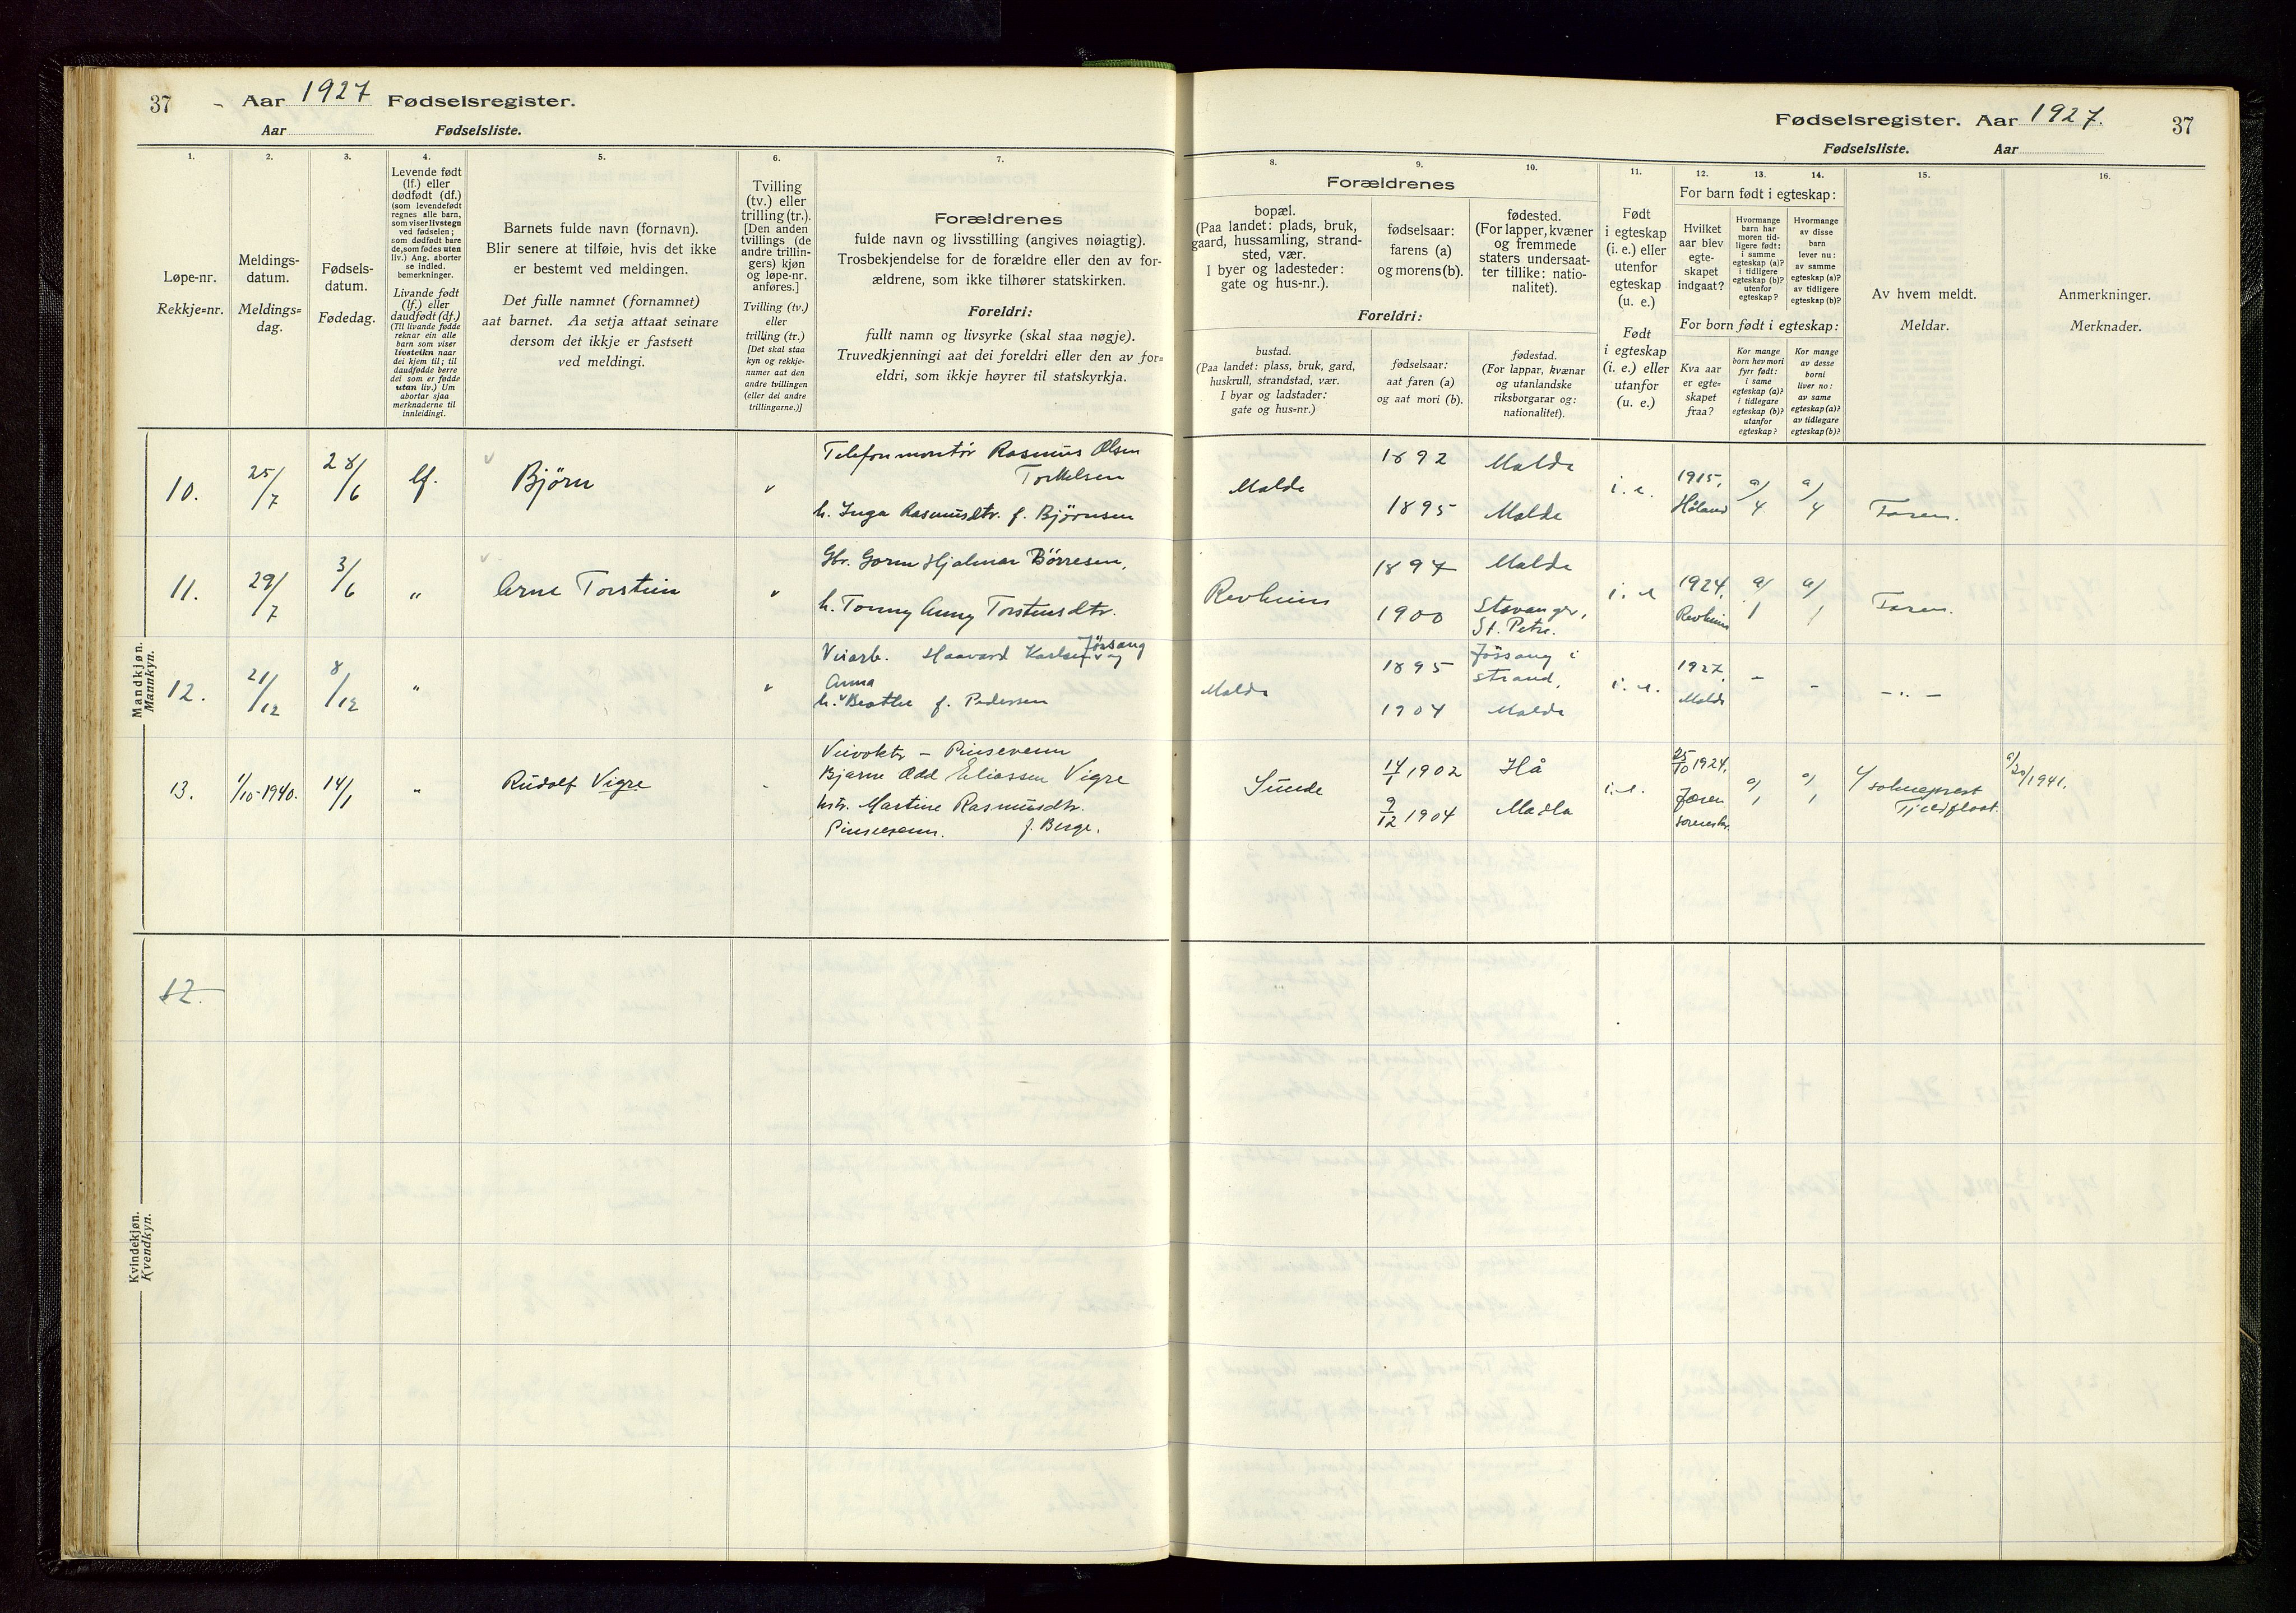 37 Aar 1927 Fødselsregister.
Aar Fødselsliste.
Fødselsregister. Aar 1927. 37
Fødselsliste. Aar
1.
Løpe-nr.
Rekkje=nr.
2.
Meldings-
datum.
Meldings=
dag.
3.
Fødsels-
datum.
Fødedag.
4.
Levende født
(lf.) eller
dødfødt (df.)
(som levendefødt
regnes alle barn,
som viser livstegn
ved fødselen;
som dødfødt bare
de, som fødes uten
liv.) Ang. aborter
se indled.
bemerkninger.
Livande født
(lf.) eller
daudfødt (df.)
(Til livande fødde
reknar ein alle
barn som viser
livsteikn naar
dei kjem til; til
daudfødde berre
dei som er fødde
utan liv.) Um
abortar sjaa
merknaderne til
innleidingi.
5.
Barnets fulde navn (fornavn).
Blir senere at tilføie, hvis det ikke
er bestemt ved meldingen.
Det fulle namnet (fornamnet)
aat barnet. Aa setja attaat seinare
dersom det ikkje er fastsett
ved meldingi.
6.
Tvilling
(tv.) eller
trilling (tr.).
[Den anden
tvillings (de
andre trillin-
gers) kjøn
og løpe-nr.
anføres.]
Tvilling (tv.)
eller
trilling (tr.)
[Det skal staa
kyn og rekkje-
numer aat den
andre tvillingen
(eller dei andre
trillingarne.)]
7.
Forældrenes
fulde navn og livsstilling (angives nøiagtig).
Trosbekjendelse for de forældre eller den av for-
ældrene, som ikke tilhører statskirken.
Foreldri:
fullt namn og livsyrke (skal staa nøgje).
Truvedkjenningi aat dei foreldri eller den av for=
eldri, som ikkje høyrer til statskyrkja.
Forældrenes
8.
bopæl.
(Paa landet: plads, bruk,
gaard, hussamling, strand-
sted, vær.
I byer og ladesteder:
gate og hus-nr.).
9.
fødselsaar:
farens (a)
og morens (b).
10.
fødested.
(For lapper, kvæner
og fremmede
staters undersaat-
ter tillike: natio-
nalitet).
Foreldri:
bustad.
(Paa landet: plass, bruk, gard,
huskrull, strandstad, vær.
I byar og ladstader:
gate og hus=nr.)
fødselsaar:
aat faren (a)
og aat mori (b).
fødestad.
(For lappar, kvænar
og utanlandske
riksborgarar og:
nationalitet).
11.
Født
i egteskap
(i. e.) eller
utenfor
egteskap
(u. e.)
Født
i egteskap
(i. e.) eller
utanfor
(u. e.)
12. 13. 14.
For barn født i egteskap:
Hvilket
aar blev
egte-
skapet
indgaat?
Hvormange
barn har
moren tid-
ligere født:
i samme
egteskap (a)?
i tidligere
egteskap (b)?
utenfor
egteskap?
Hvormange
av disse
barn
lever nu:
av samme
egteskap (a)?
av tidligere
egteskap (b)?
For born født i egteskap:
Kva aar
er egte=
skapet
fraa?
Kor mange
born hev mori
fyrr født:
i same
egteskap (a)?
i tidlegare
egteskap (b)?
utanfor
egteskap?
Kor mange
av desse
borni
liver no:
av same
egteskap (a)?
av tidlegare
egteskap (b)?
15.
Av hvem meldt.
Meldar.
16.
Anmerkninger.
Merknader.
Mandkjøn.
Mannkyn.
10. 25/7 28/6 lf. Björn
Telefonmontör Rasmus Olsen
Torkelsen
h. Inga Rasmusdtr. f. Björnsen
Malde
1892 Malde
1895 Malde
i. e. 1915, Håland a/4 a/4 Faren.
11. 29/7 3/6 " Arne Torstein
Gbr. Gorm Hjalmar Börresen,
h. Tonny Anny Torstensdtr.
Revheim
1894 Malde
1900 Stavanger,
St. Petri.
i. e 1924, Revheim a/1 a/1 Faren.
12. 21/12 8/12 "
Veiarb. Haavard Karlsen Jössang
Anna
h. Beathe f. Pedersen
Malde
1895 Jössang i
Strand,
1904 Malde
i. e. 1927, Malde - - -"-
13. 1/10-1940. 14/1 " Rudolf Vigre
Veivokter - Pinsevenn
Bjarne Odd Eliassen Vigre
hstr. Martine Rasmusdtr.
Pinsevenn. f. Berge.
Sunde
14/1 1902 Hå
9/12 1904 Madla
i. e. 25/10 1924, Jæren a/1 a/1
sokneprest
Tjeldflaat.
/1941.
Kvindekjøn.
Kvendkyn.
12.